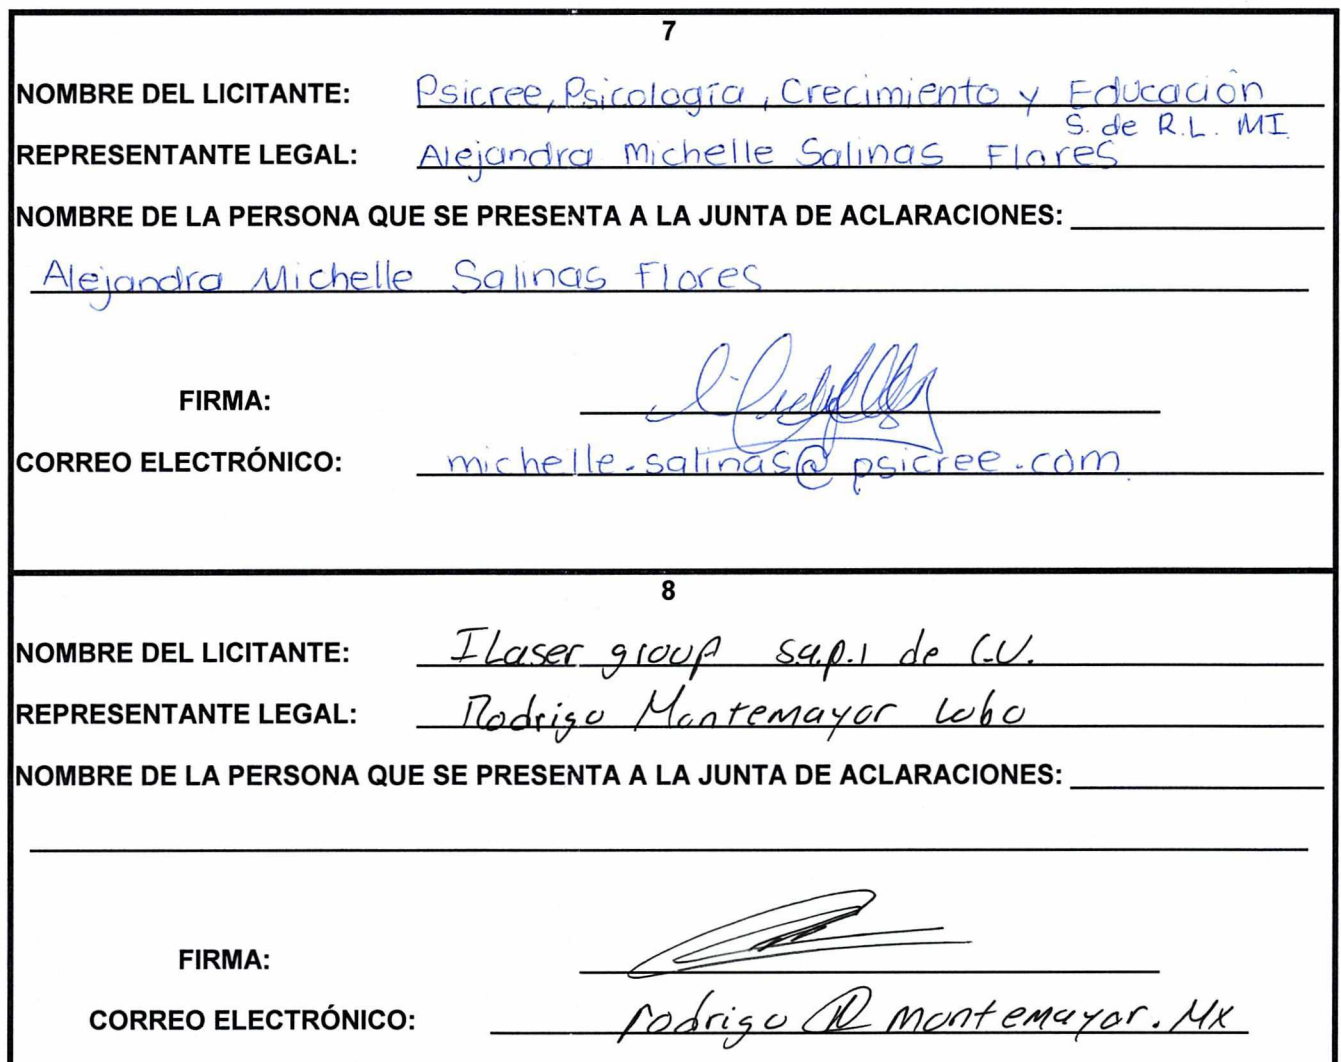 7
NOMBRE DEL LICITANTE: Psicree, Psicología, Crecimiento y Educación
S. de R.L. MI
REPRESENTANTE LEGAL: Alejandra Michelle Salinas Flores
NOMBRE DE LA PERSONA QUE SE PRESENTA A LA JUNTA DE ACLARACIONES:
Alejandra Michelle Salinas Flores
FIRMA:
CORREO ELECTRÓNICO: michelle.salinas@psicree.com
8
NOMBRE DEL LICITANTE: ILaser group s.a.p.i de C.V.
REPRESENTANTE LEGAL: Rodrigo Montemayor Lobo
NOMBRE DE LA PERSONA QUE SE PRESENTA A LA JUNTA DE ACLARACIONES:
FIRMA:
CORREO ELECTRÓNICO: rodrigo@montemayor.mx